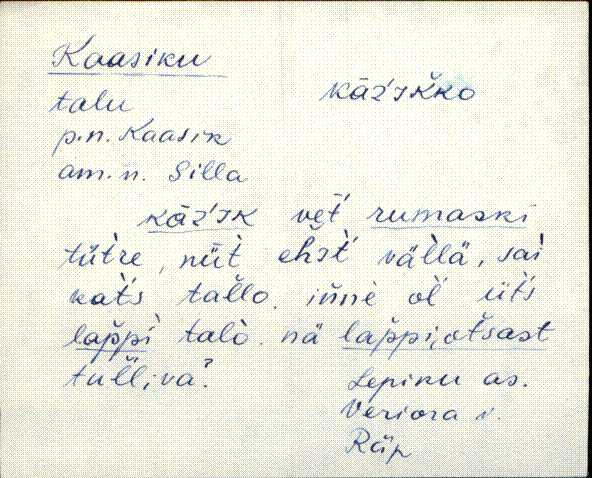 Kaasiku
kāź̌ık̆ko
talu
p.n. Kaasik
am.n. Silla
kāź̌ık vet́ rumaski
tüt̀re, nüt̀ ehsť vällä, sai
kat́s tal̆lo. iňne oĺ üt́s
lap̆pi talo. nä lap̆pi, ot̆sast
tul̆liva?
Lepiku as.
Veriora v.
Räp